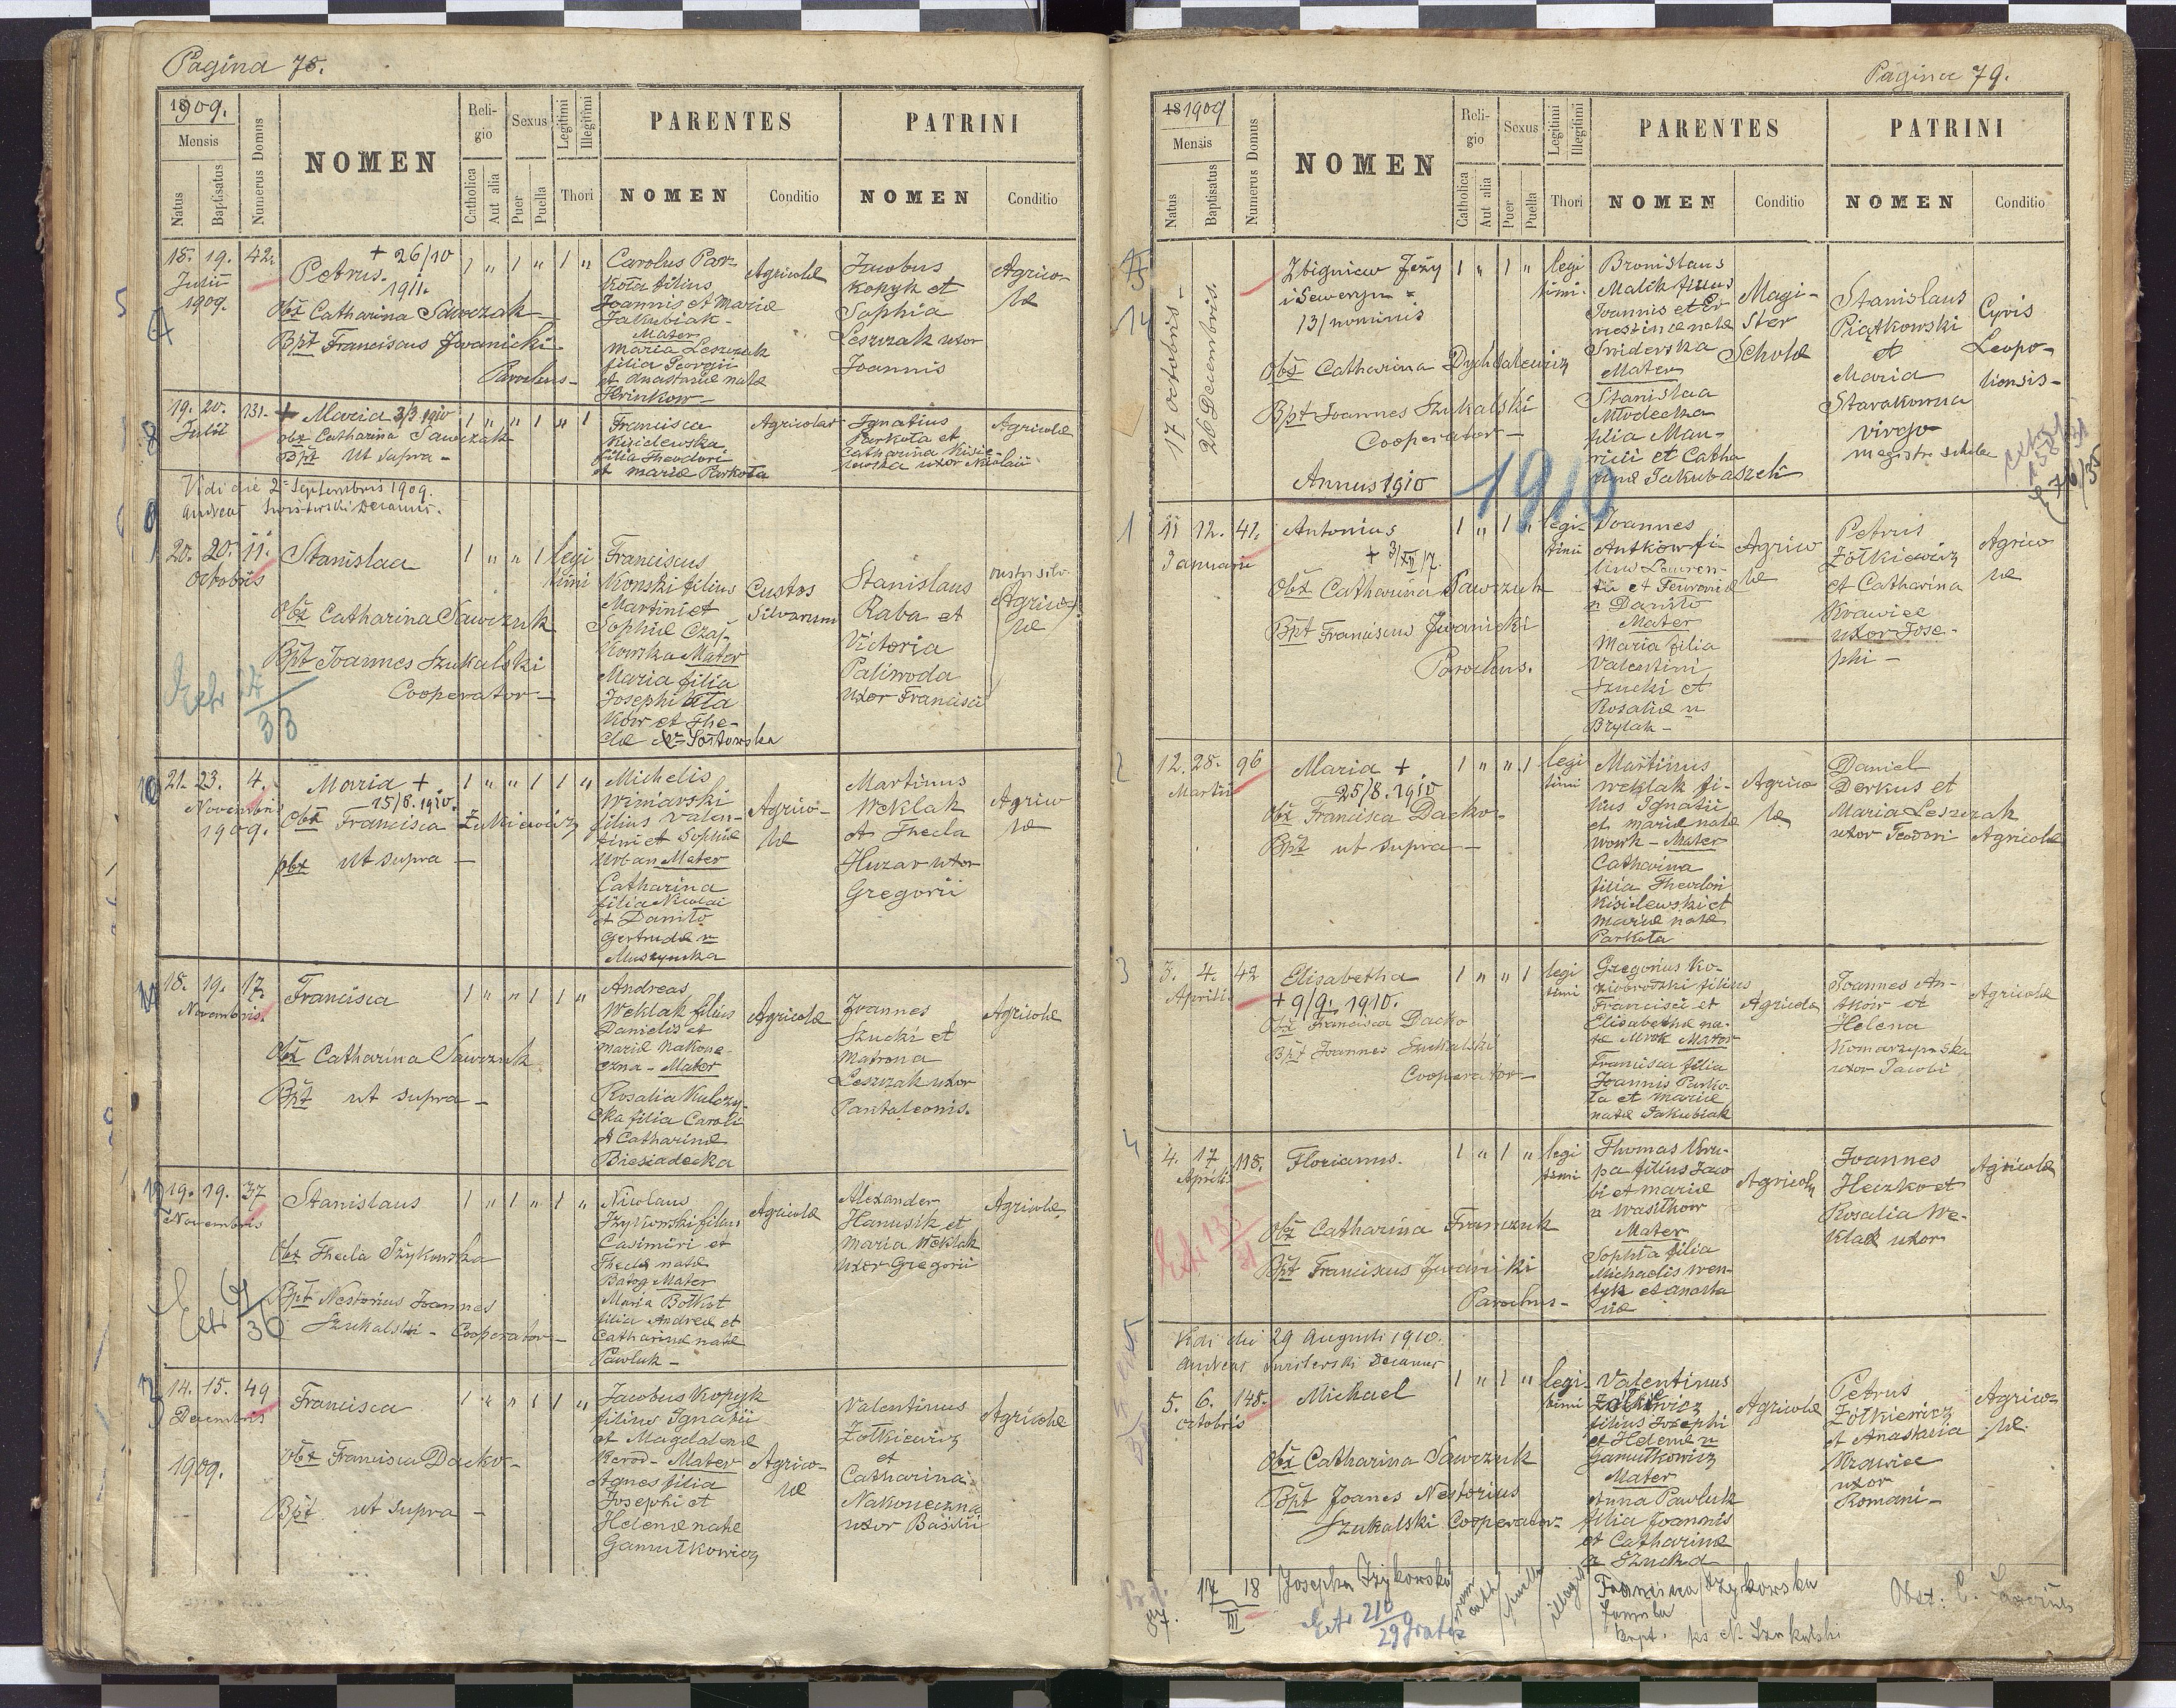 Pagina 78.
1909.
Mensis
Natus
Baptisatus
Numerus Domus
NOMEN
Religio
Catholica
Aut alia
Sexus
Puer
Puella
Legitimi
Illegitimi
Thori
PARENTES
NOMEN
Conditio
PATRINI
NOMEN
Conditio
18. 19. 42.
Julii
1909.
Petrus. + 26/10
1911.
Obš Catharina Sawczak
Bpt Franciscus Iwanicki
Parochus-
1 " 1 " 1 "
Carolus Par-
kota filius
Joannis et Mariæ
Jakubiak-
Mater
Maria Leszczak
filia Georgii
et Anastasiæ natæ
Hrinkow-
Agricolæ
Jacobus
Kopyk et
Sophia
Leszczak uxor
Joannis
Agrico-
læ
8
19. 20. 131.
Julii
+ Maria 3/3 1910
obš Catharina Sawczak
Bpt Ut supra -
1 " " 1 " 1
Francisca
Kisielewska
filia Theodori
et Mariæ Parkota
Ignatius
Parkota et
Catharina Kisie-
lewska uxor Nicolaii
Agricolæ
Vidi die 2 Septembris 1909.
Andreas Swisterski Decanus.
9
20. 20. 11.
Octobris
Stanislaa
Obš Catharina Sawczuk
Bpt Joannes Szukalski
Cooperator-
Extr 14/33
1 " " 1 legi
timi
Franciscus
Konski filius
Martini et
Sophiæ Czaj-
kowska Mater
Maria filia
Josephi
kow et The-
clæ
Custos
Silvarum
Stanislaus
Raba et
Victoria
Paliwoda
uxor Francisci
Agrico-
læ
10
21. 23. 4.
Novembris
1909.
Maria +
15/8. 1910.
Obš Francisca Żułkiewicz
pbt ut supra -
1 " " 1 1 "
Michelis
Winiarski
filius Valen-
tini et Sophiæ
Urban Mater
Catharina
filia Nicolai
et Daniło
Gertrudæ n
Muszynska
Agrico-
læ
Martinus
Weklak
et Thecla
Huzar uxor
Gregorii
Agrico
læ
11
18. 19. 17.
Novembris.
Francisca
Obš Catharina Sawczuk
Bpt ut supra -
1 " " 1 1 "
Andreas
Weklak filius
Danielis et
Mariæ Nakone-
czna - Mater
Rosalia Kulczy-
cka filia Caroli
et Catharinæ
Biesiadecka
Agricolæ
Joannes
Szucki et
Matrona
Leszczak uxor
Pantaleonis.
Agricolæ
12
19. 19. 37
Novembris
Stanislaus
Obš Thecla Iżykowska
Bpt Nestorius Joannes
Szukalski - Cooperator-
1 " 1 " 1 "
Nicolaus
Iżykowski filius
Casimiri et
Theclæ natæ
Batog Mater
Maria Bołkot
filia Andreæ et
Catharinæ natæ
Pawluk -
Agricolæ
Alexander
Hanusik et
Maria Weklak
uxor Gregorii
Agricolæ
13
14. 15. 49
Decembris
1909.
Francisca
Obš Francisca Dacko-
Bpt. ut supra -
1 " " 1 1 "
Jacobus Kopyk
filius Ignatii
et Magdalenæ
Kerod- Mater
Agnes filia
Josephi et
Helenæ natæ
Gamułkowicz
Agrico-
læ
Valentinus
Żołkiewicz
et
Catharina
Nakoneczna
uxor Basilii
Agricolæ
Pagina 79.
18 1909
Mensis
Natus
Baptisatus
Numerus Domus
NOMEN
Religio
Catholica
Aut alia
Sexus
Puer
Puella
Legitimi
Illegitimi
Thori
PARENTES
NOMEN
Conditio
PATRINI
NOMEN
Conditio
14
17 octobris -
26 Decembris.
Zbigniew Jeży
i Seweryn =
13/ nominis
Obš Catharina Dychdalewicz
Bpt Joannes Szukalski
Cooperator-
1 " 1 " legi
timi.
Bronislaus
Malik filius
Joannis et Er-
nestinæ natæ
Sniderska
Mater
Stanislaa
Młodecka
filia Mau-
ricii et Catha
rinæ Jakubaszek
Magi-
ster
Scholæ
Stanislaus
Piątkowski
et
Maria
Starakowna
virgo
magistr. scholæ
Civis
Leopo-
liensis-
Annus 1910
1910
1
11 12. 41.
Januarii
Antonius
+ 3/XII 17.
Obš Catharina Sawczuk
Bpt Franciscus Iwanicki
Parochus.
1 " 1 " legi-
timi
Joannes
Antkow fi
lius Lauren-
tii et Fevroniæ
n Daniło
Mater
Maria filia
Valentini
Szucki et
Rosaliæ n
Brylak -
Agrico
læ
Petrus
Żółkiewicz
et Catharina
Krawiec
uxor Jose-
phi -
Agrico
læ
2
12. 28. 96
Martii
Maria +
25/8. 1910
obš Francisca Dacko-
Bpt ut supra -
1 " " 1 legi
timi
Martinus
Weklak fi-
lius Ignatii
et Mariæ natæ
Wowk - Mater
Catharina
filia Theodori
Kisielewski et
Mariæ natæ
Parkota
Agrico
læ
Daniel
Derkus et
Maria Leszczak
uxor Teodori
Agricolæ
3
3. 4. 42
Aprilis.
Elisabetha
+ 9/9. 1910.
Obš Francisca Dacko
Bpt Joannes Szukalski
Cooperator-
1 " " 1 legi
timi
Gregorius Ko-
ziobrodzki filius
Francisci et
Elisabethæ na-
tæ Mrok Mater
Francisca filia
Joannis Parko-
ta et Mariæ
natæ Jakubiak
Agricolæ
Joannes An-
tkow et
Helena
Komarzynska
uxor Jacobi
Agricolæ
4
4. 17 118.
Aprilis
Florianus.
Obš Catharina Franczuk
Bpt Franciscus Iwanicki
Parochus-
1 " 1 " legi
timi
Thomas Kru-
pa filius Jaco
bi et Mariæ
n Wasiłkow
Mater
Sophia filia
Michaelis Wen-
tyk et Anasta
siæ
Agricolæ
Joannes
Heczko et
Rosalia We-
klak uxor
Agricolæ
Vidi die 29 Augusti 1910.
Andreas Swisterski Decanus
5
5. 6. 148.
Octobris
Michael
Obš Catharina Sawczuk
Bpt Joanes Nestorius
Szukalski Cooperator-
1 " 1 " legi-
timi
Valentinus
Żołkiewicz
filius Josephi
et Helenæ n
Gamułkowicz
Mater
Anna Pawluk
filia Joannis
et Catharinæ
n Szucka
Agricolæ
Petrus
Żółkiewicz
et Anastasia
Krawiec
uxor
Romani-
Agrico-
læ.
17 18
III
Josepha Iżykowska
Extr 210/29 gratis
puella
illegit.
Francisca Iżykowska
famula
bapt. ks N. Szukalski
Obst: C.